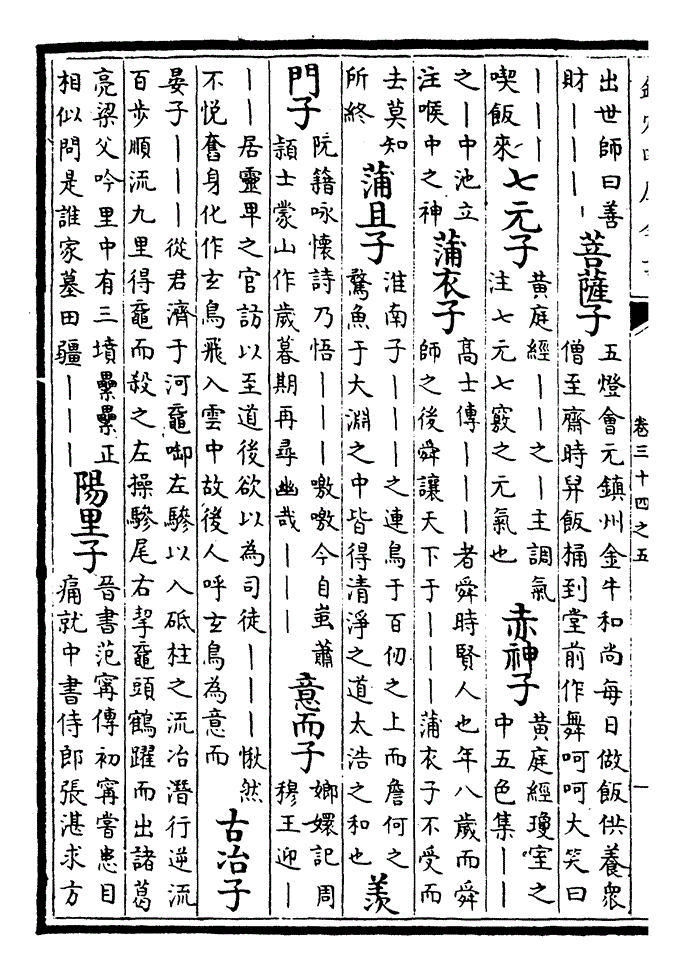 卷三十四之五
一
出世師曰善
財｜｜｜｜
菩薩子
五燈會元鎮州金牛和尚每日做飯供養衆
僧至齋時舁飯桶到堂前作舞呵呵大笑曰
｜｜｜｜
喫飯來
七元子
黃庭經｜｜之｜主調氣
注七元七竅之元氣也
赤神子
黃庭經瓊室之
中五色集｜｜
之｜中池立
注喉中之神
蒲衣子
高士傳｜｜｜者舜時賢人也年八歲而舜
師之後舜讓天下于｜｜｜蒲衣子不受而
去莫知
所終
蒲且子
淮南子｜｜｜之連鳥于百仞之上而詹何之
驚魚于大淵之中皆得清淨之道太浩之和也
羨
門子
阮籍咏懷詩乃悟｜｜｜噭噭今自蚩 蕭
頴士蒙山作歲暮期再尋幽哉｜｜｜
意而子
嫏嬛記周
穆王迎｜
｜｜居靈卑之官訪以至道後欲以為司徒｜｜｜愀然
不悅奮身化作玄鳥飛入雲中故後人呼玄鳥為意而
古冶子
晏子｜｜｜從君濟于河黿啣左驂以入砥柱之流冶潛行逆流
百步順流九里得黿而殺之左操驂尾右挈黿頭鶴躍而出諸葛
亮梁父吟里中有三墳纍纍正
相似問是誰家墓田疆｜｜｜
陽里子
晉書范甯傳初甯嘗患目
痛就中書侍郎張湛求方